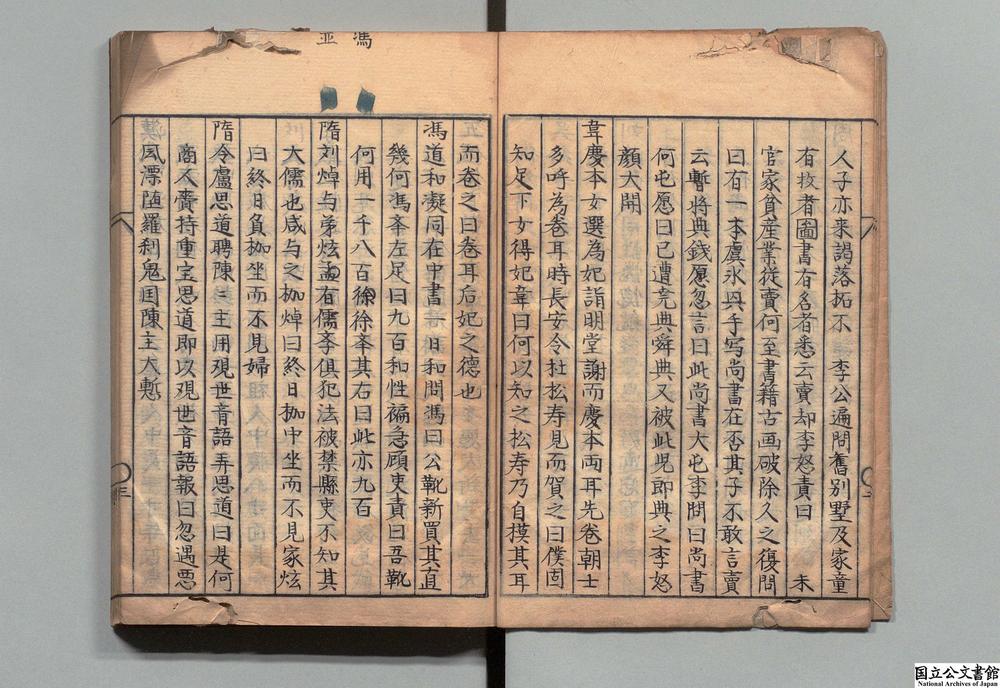 人子亦来謁落拓不 李公遍問舊別墅及家童
有牧者圖書有名者悉云賣却李怒責曰 未
官家貧産業從賣何至書籍古画破除久之復問
曰有一本虞永興手写尚書在否其子不敢言賣
云暫將典錢愿忽言曰此尚書大屯李問曰尚書
何屯愿曰已遭尭典舜典又被此児即典之李怒
顔大開
韋慶本女選為妃詣明堂謝而慶本両耳先卷朝士
多呼為卷耳時長安令杜松寿見而賀之曰僕固
知足下女得妃韋曰何以知之松寿乃自摸其耳
而卷之曰卷耳后妃之德也
馮道和凝同在中書一日和問馮曰公靴新買其直
幾何馮夲左足曰九百和性褊急顧吏責曰吾靴
何用一千八百徐徐夲其右曰此亦九百
隋刘焯与弟炫並有儒夲俱犯法被禁縣吏不知其
大儒也咸与之枷焯曰終日枷中坐而不見家炫
曰終日負枷坐而不見婦
隋令盧思道聘陳陳主用观世音語弄思道曰是何
商人賫持重宝思道即以观世音語報曰忽遇悪
風漂堕羅刹鬼国陳主大慙
馮
並
三
国立公文書館
National Archives of Japan